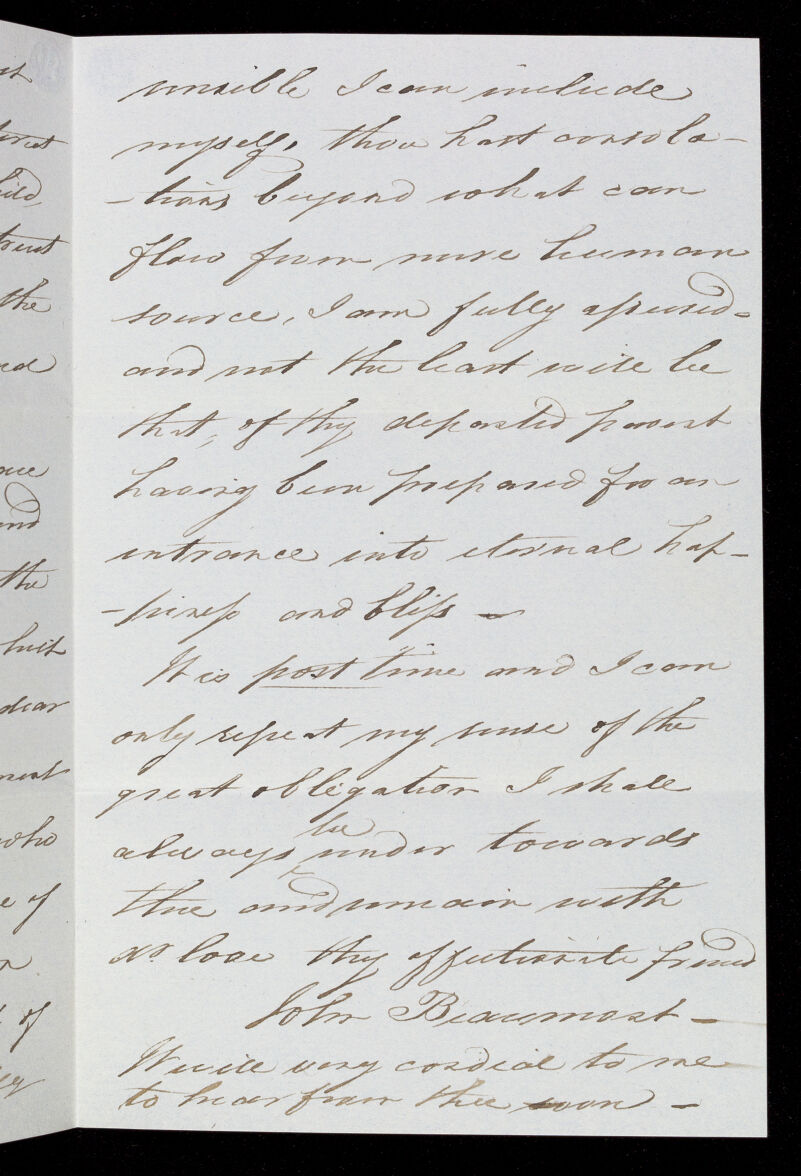 st
the
sensible I can include
myself, thou hast consola-
-tions beyond what can
flow from mere human
source, I am fully assured-
and not the least will be
that, of thy departed parent
having been prepared for an
entrance into eternal hap-
-piness and bliss -
It is post time and I can
only repeat my sense of the
great obligation I shall
always be under towards
thee and remain with
dr love thy affectionate friend
John Beaumont -
It will very cordial to me
to hear from thee soon -
and
the
dear
who
e of
of